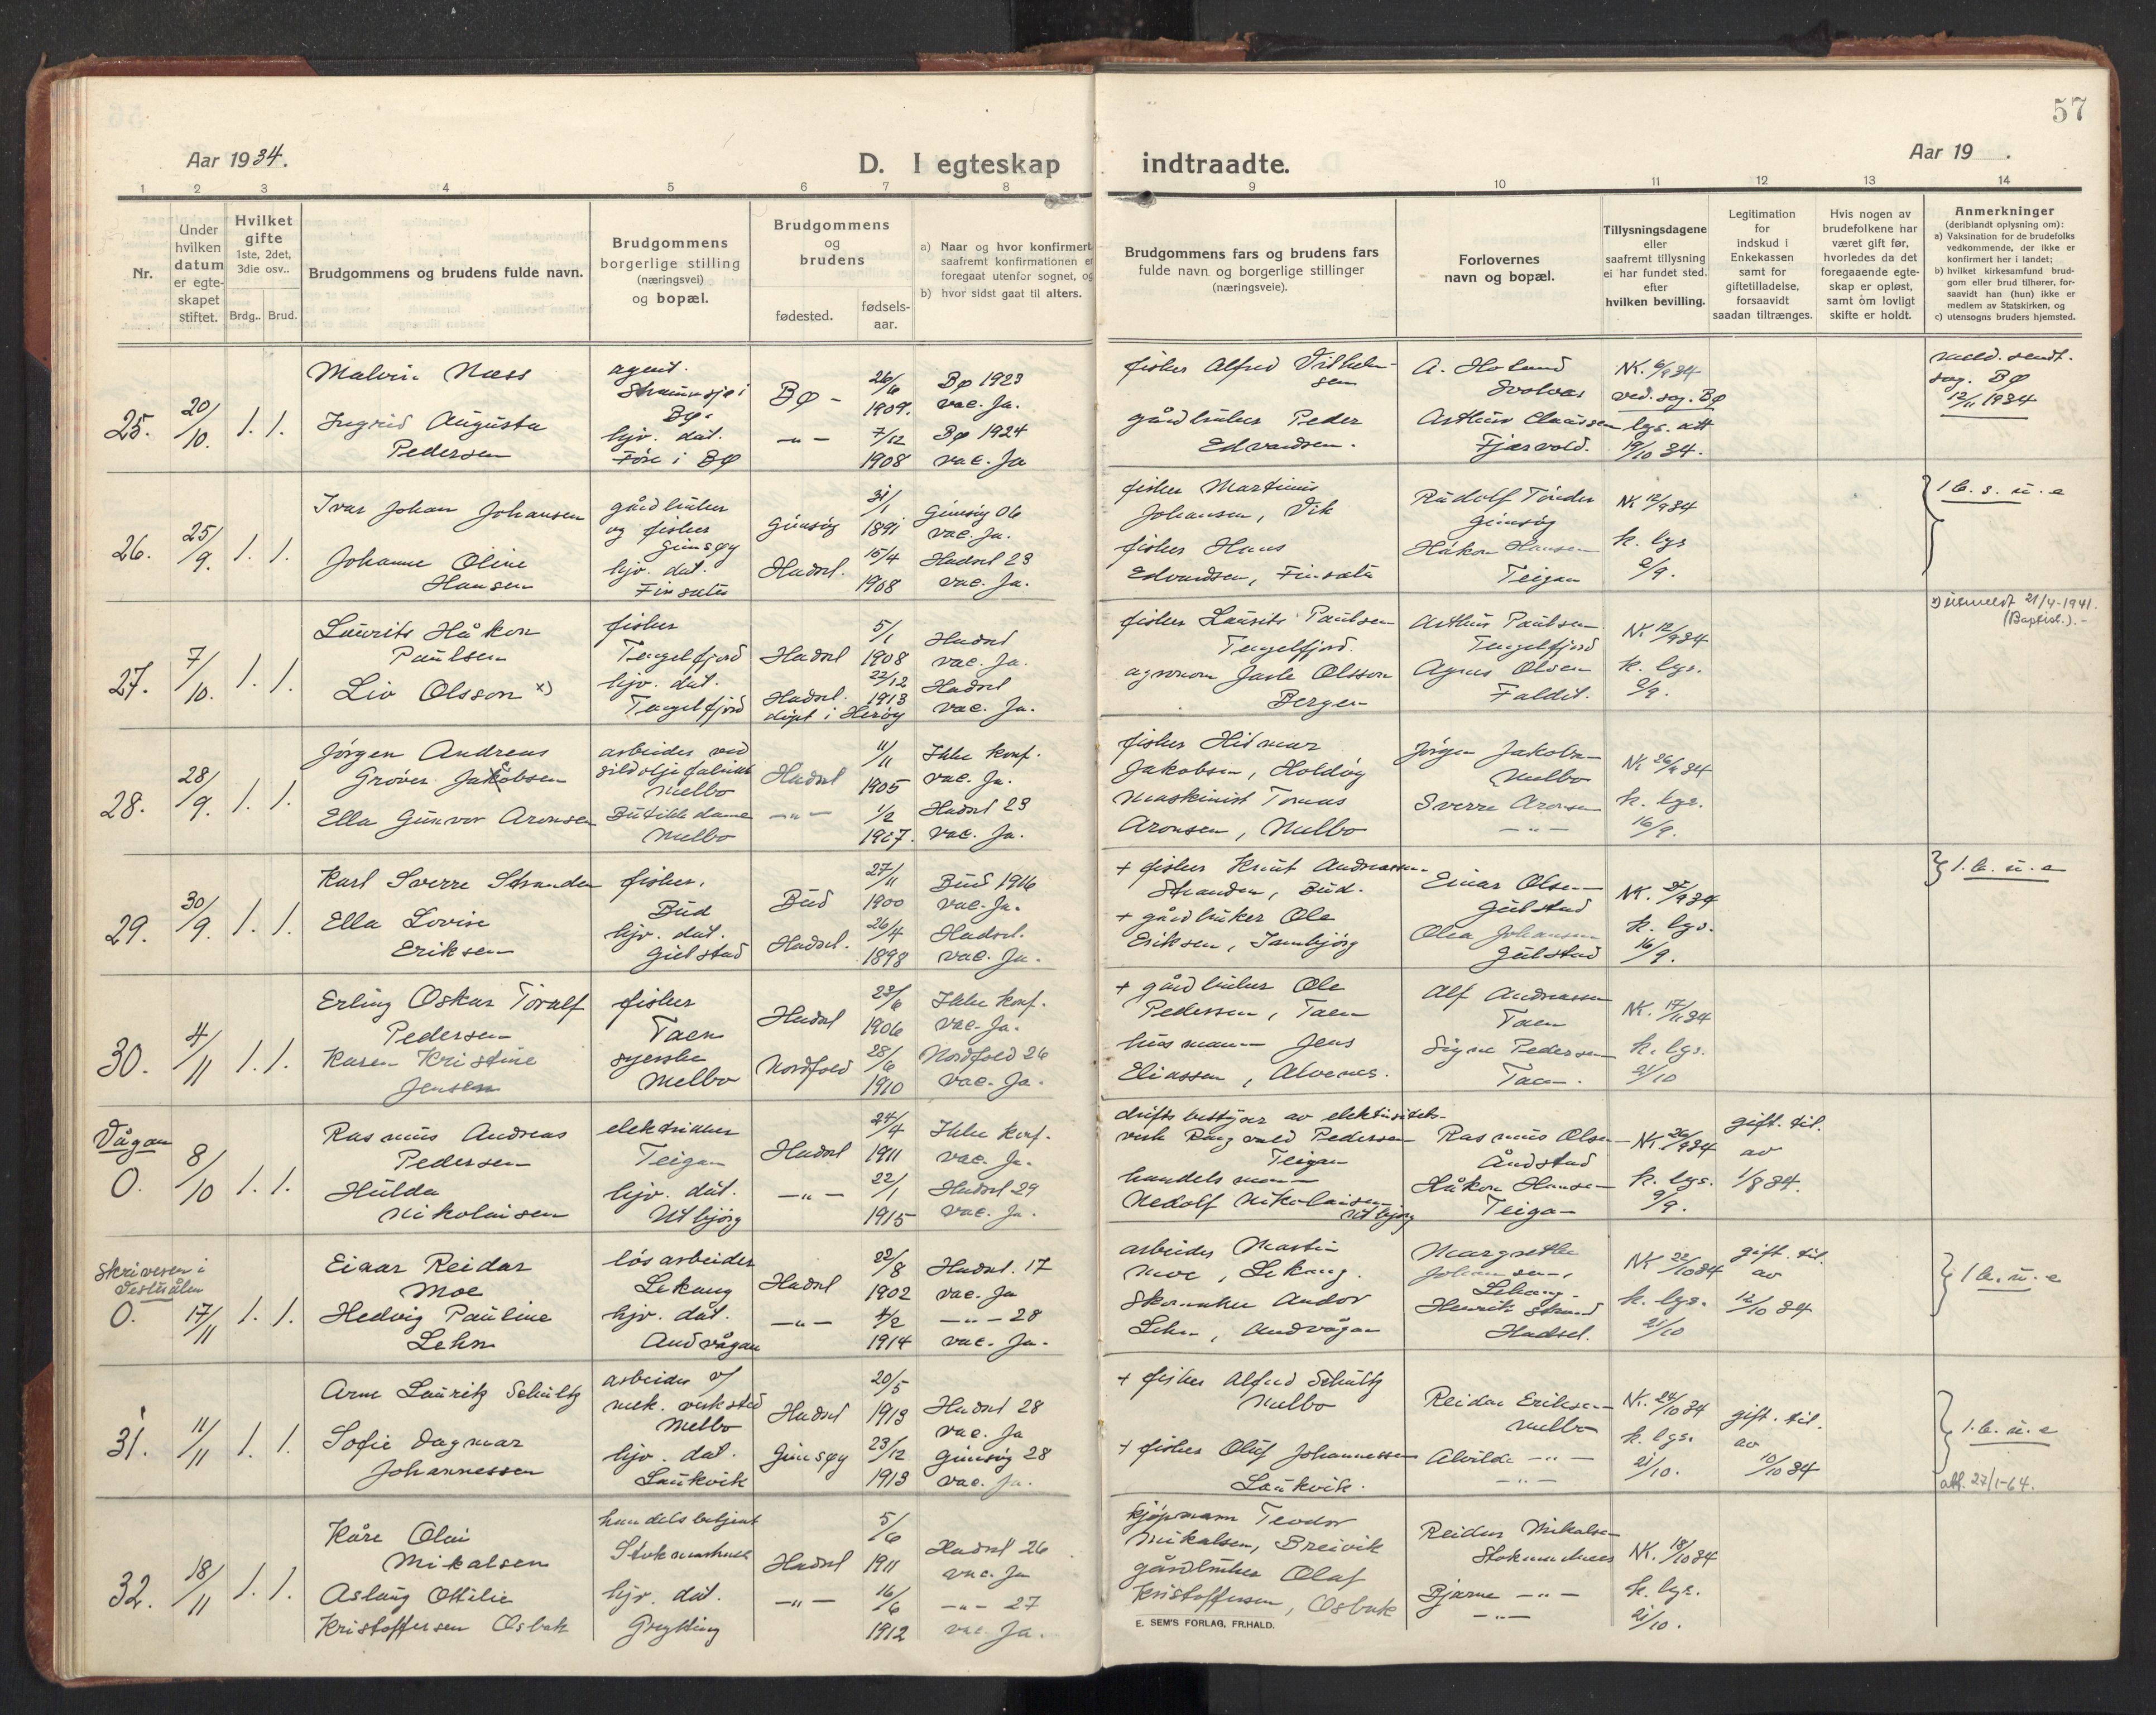 57
Aar 1934.
D. I egteskap indtraadte.
Aar 19 .
1 2 3 4 5 6 7 8 9 10 11 12 13 14
Nr.
Under hvilken datum er egte-skapet stiftet.
Hvilket gifte 1ste, 2det, 3die osv..
Brdg.. Brud.
Brudgommens og brudens fulde navn.
Brudgommens borgerlige stilling (næringsvei) og bopæl.
Brudgommens og brudens
fødested.
fødsels-aar.
a) Naar og hvor konfirmert, saafremt konfirmationen er foregaat utenfor sognet, og
b) hvor sidst gaat til alters.
Brudgommens fars og brudens fars fulde navn og borgerlige stillinger (næringsveie).
Forlovernes navn og bopæl.
Tillysningsdagene eller saafremt tillysning ei har fundet sted. efter hvilken bevilling.
Legitimation for indskud i Enkekassen samt for giftetilladelse, forsaavidt saadan tiltrænges.
Hvis nogen av brudefolkene har været gift før, hvorledes da det foregaaende egte-skap er opløst, samt om lovligt skifte er holdt.
Anmerkninger (deriblandt oplysning om):
a) Vaksination for de brudefolks vedkommende, der ikke er konfirmert her i landet;
b) hvilket kirkesamfund brud-gom eller brud tilhører, for-saavidt han (hun) ikke er medlem av Statskirken, og
c) utensogns bruders hjemsted.
25. 20/10. 1. 1.
Malvin Næss
agent.
Bø.
Bø -
26/6 1909.
Bø 1923
vac. Ja.
fisker Alfred Vilhelm-
sen
A. Holand
Svolvær
NK. 6/9 34
ved. sog. Bø
meld. sendt.
sog. Bø
12/11 1934
Ingrid Augusta
Pedersen
hjv. dat.
Føre i Bø
-"-
7/12 1908
Bø 1924
vac. Ja
gårdbruker Peder
Edvardsen.
Arthur Claussen
Fjærvold.
lys. att
19/10 34.
26. 25/9. 1. 1.
Ivar Johan Johansen
gårdbruker
og fisker
Gimsøy
Gimsøy
31/1 1891
Gimsøy 06
vac. Ja.
fisker Martinus
Johansen, Vik
Rudolf Tønder
Gimsøy
NK 12/9 34
1 b. s. u. a
Johanne Oline
Hansen
hjv. dat.
Finsæter
Hadsel.
15/4 1908
Hadsel 23
vac. Ja.
fisker Hans
Edvardsen, Finsæter
Håkon Hansen
Teigan
k. lys
2/9.
27. 7/10. 1. 1.
Laurits Håkon
Paulsen
fisker
Tengelfjord
Hadsel
5/1 1908
Hadsel
vac. Ja.
fisker Laurits Paulsen
Tengelfjord.
Arthur Paulsen
Tengelfjord
NK 12/9 34
x) utmeldt 21/4-1941.
(Baptist.).-
Liv Olsson x)
hjv. dat.
Tengelfjord
Hadsel.
døpt i Herøy
22/12 1913
Hadsel
vac. Ja.
agronom Jarle Olsson
Bergen
Agnes Olsen
Faldet.
k. lys.
2/9.
28. 28/9. 1. 1.
Jørgen Andreas
Grøver Jakobsen
arbeider ved
sildoljefabrikk
Melbo
Hadsel
11/11 1905
Ikke konf.
vac. Ja.
fisker Hilmar
Jakobsen, Holdøy
Jørgen Jakobsen
Melbo
NK 26/4 34
Ella Gunvor Aronsen
Butikkdame
Melbo
-"-
1/2 1907.
Hadsel 23
vac. Ja.
Maskinist Tomas
Aronsen, Melbo
Sverre Aronsen
-"-
k. lys.
16/9.
29. 30/9. 1. 1.
Karl Sverre Stranden
fisker.
Bud
Bud
27/11 1900
Bud 1916
vac. Ja.
+ fisker Knut Andreassen
Stranden, Bud.
Einar Olsen
Gulstad
NK. 25/9 34
1. b. u. a
Ella Lovise
Eriksen
hjv. dat.
Gulstad
Hadsel.
26/4 1898
Hadsel.
vac. Ja.
+ gårdbruker Ole
Eriksen, Sambjørg
Olea Johansen
Gulstad
k. lys.
16/9.
30. 4/11 1. 1.
Erling Oskar Toralf
Pedersen
fisker
Taen
Hadsel
23/6 1906
Ikke konf.
vac. Ja.
+ gårdbruker Ole
Pedersen, Taen
Alf Andreassen
Taen
NK. 17/11 34
Karen Kristine
Jensen
syerske
Melbo
Nordfold
28/6 1910
Nordfold 26
vac. Ja.
husmann Jens
Eliassen, Alvenes.
Signe Pedersen
Taen.
k. lys.
21/10
Vågan
0. 8/10 1. 1.
Rasmus Andreas
Pedersen
elektriker
Teigan
Hadsel
24/4 1911
Ikke konf.
vac. Ja.
driftsbestyrer av elektrisitets-
verk Rangvald Pedersen
Teigan
Rasmus Olsen
Åndstad
NK. 26/9 34
gift. til.
av
1/8 34.
Hulda
Nikolaisen
hjv. dat.
Utbjørg
-"-
22/1 1915
Hadsel 29
vac. Ja.
handelsmann
Nedolf Nikolaisen
Utbjørg
Håkon Hansen
Teigan
k. lys.
9/9.
Skriveren i
Vesterålen
0. 17/11 1. 1.
Einar Reidar
Moe
løsarbeider
Lekang
Hadsel
22/8 1902
Hadsel. 17
vac. Ja
arbeider Martin
Moe, Lekang.
Margrethe
Johansen,
Lekang.
NK 22/10 34
gift. til.
av
12/10 34
1 b. u. a
Hedvig Pauline
Lehn
hjv. dat.
Andvågan
-"-
4/2 1914
-"- 28
vac. Ja.
Skomaker Andor
Lehn, Andvågan
Henrik Strand
Hadsel.
k. lys.
21/10
31. 11/11 1. 1.
Arne Lauritz Schultz
arbeider v/
mek. verksted
Melbo
Hadsel
20/5 1913
Hadsel 28
vac. Ja
+ fisker Alfred Schultz
Melbo
Reidar Eriksen
Melbo
NK. 24/10 34
gift. til.
av
10/10 34
1. b. u. a
Sofie Dagmar
Johannessen
hjv. dat.
Laukvik
Gimsøy
23/12 1913
Gimsøy 28
vac. Ja.
+ fisker Oluf Johannessen
Laukvik.
Alvilde -"-
-"-
k. lys.
21/10.
att. 27/1-64.
32. 18/11 1. 1.
Kåre Olai
Mikalsen
handelsbetjent
Stokmarknes
Hadsel
5/6 1911
Hadsel 26
vac. Ja
kjøpmann Teodor
Mikalsen, Breivik
Reidar Mikalsen
Stokmarknes
NK. 18/10 34
Aslaug Ottilie
Kristoffersen Osbak
hjv. dat.
Grytting
-"-
16/6 1912
-"- 27
vac. Ja.
gårdbruker Olaf
Kristoffersen, Osbak
Bjarne -"-
-"-
k. lys.
21/10.
E. SEM'S FORLAG, FR.HALD.